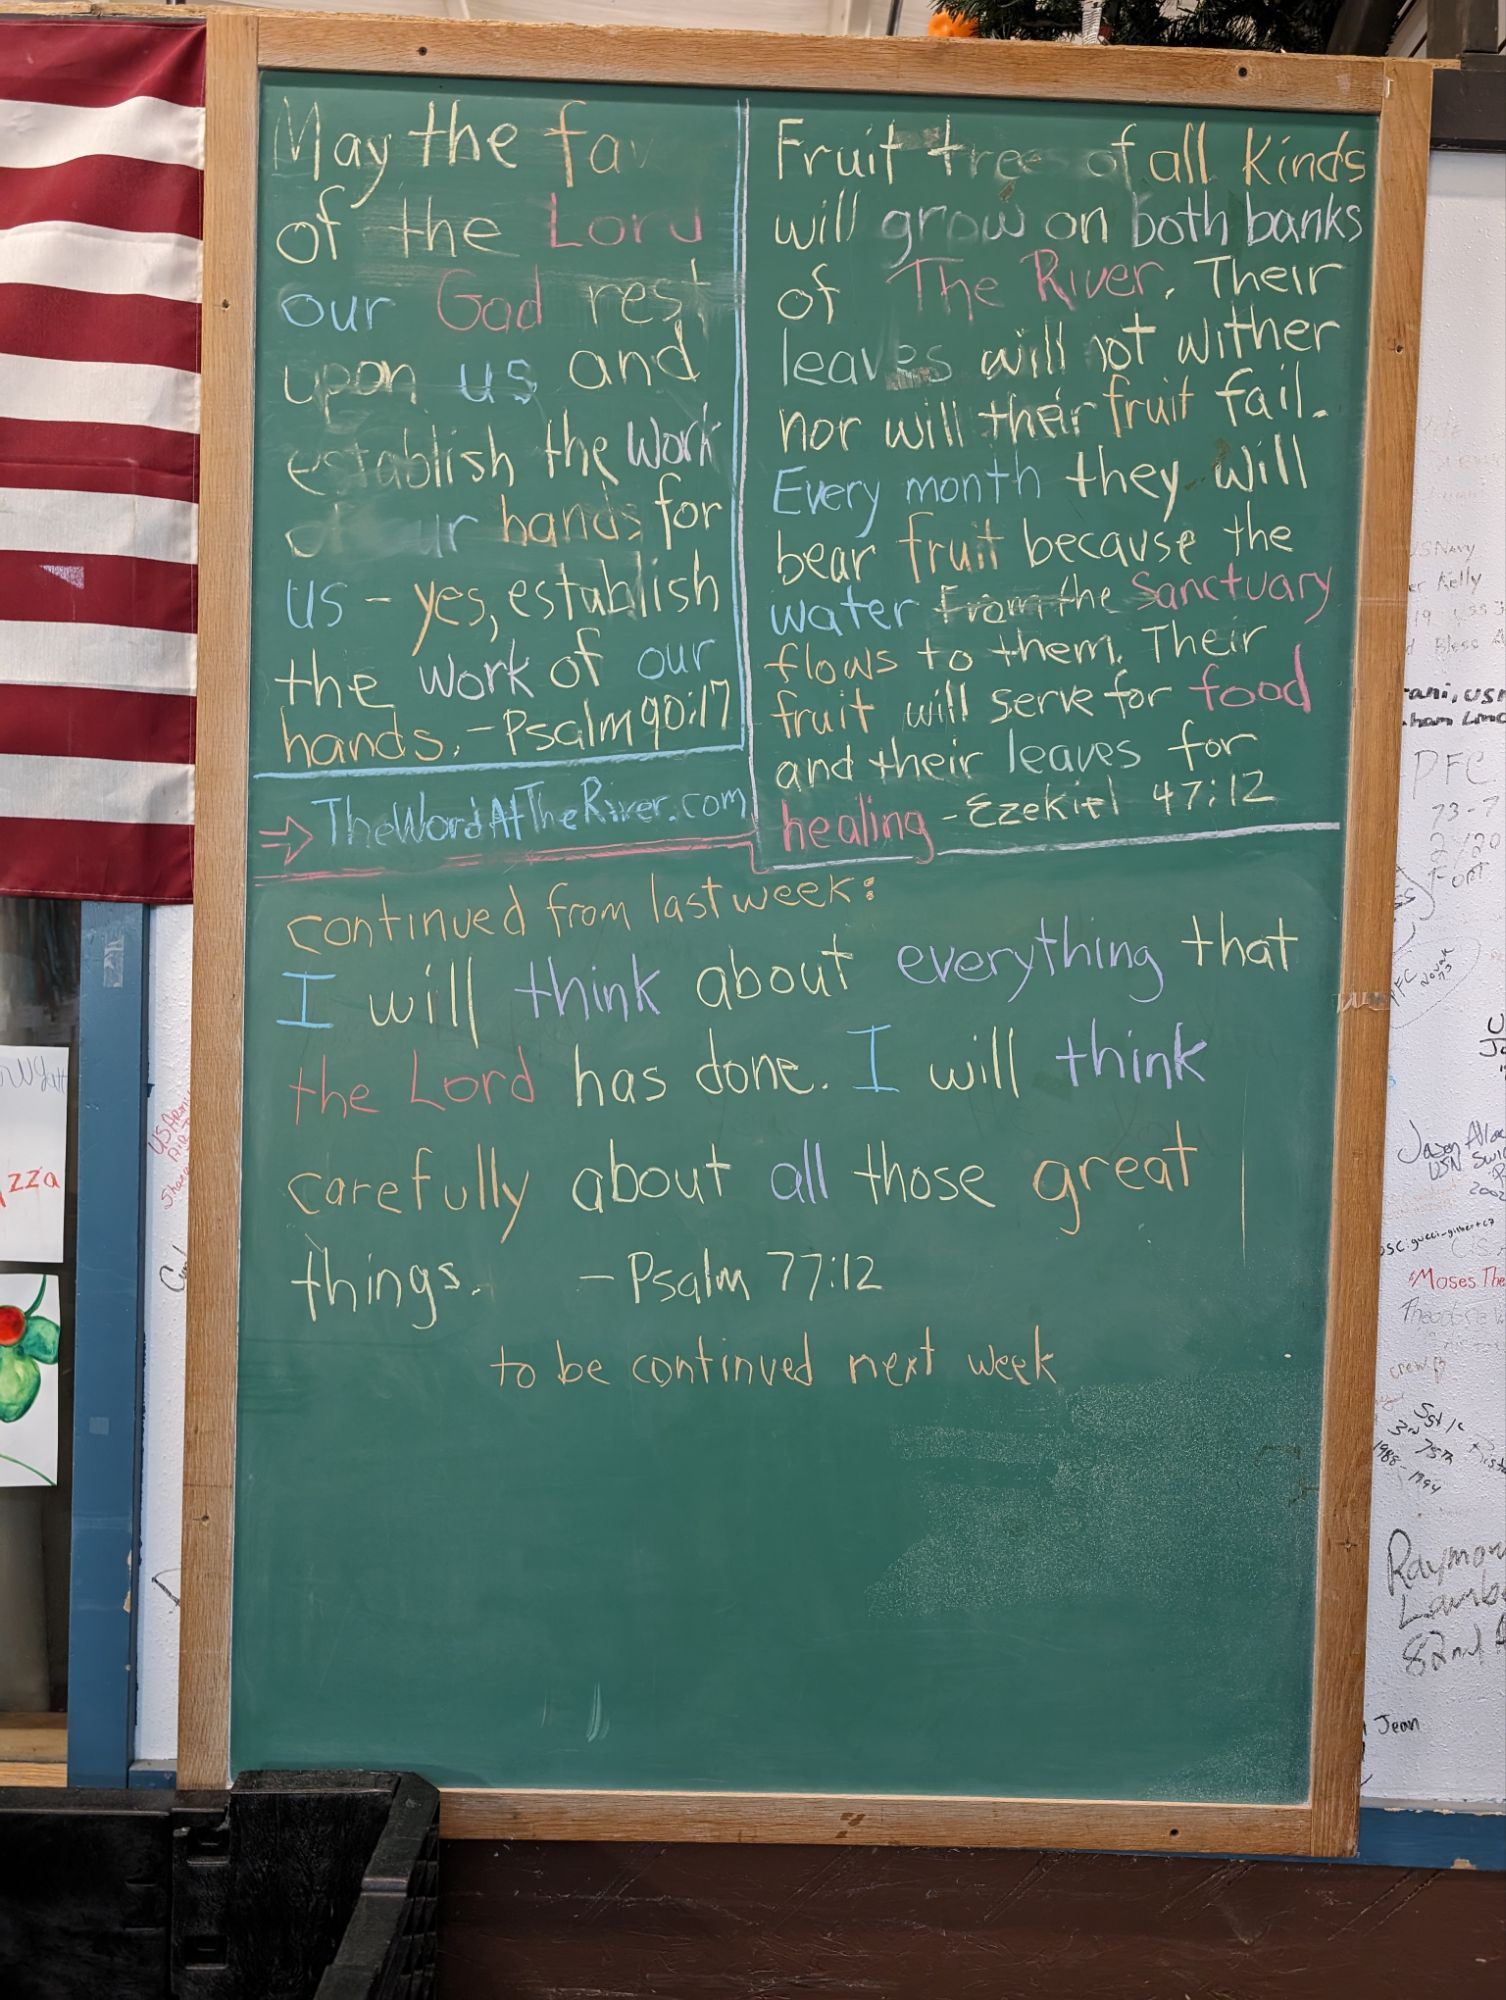 May the fav
of the Lord
our God rest
upon us and
establish the work
of ur hands for
us - yes, establish
the work of our
hands. - Psalm 90:17
→ TheWordAtTheRiver.com
Fruit trees of all Kinds
will grow on both banks
of The River. Their
leaves will not wither
nor will their fruit fail.
Every month they will
bear fruit because the
water From the Sanctuary
flows to them. Their
fruit will serve for food
and their leaves for
healing - Ezekiel 47:12
continued from last week:
I will think about everything that
the Lord has done. I will think
carefully about all those great
things. - Psalm 77:12
to be continued next week
zza
US Navy
Kelly
PFC
73-7
2/20
FORT
PFC Novak
73
Jason
USN
2002
"Moses The
crew
Sgt
3rd 75th
1988-1994
82nd A
Jean